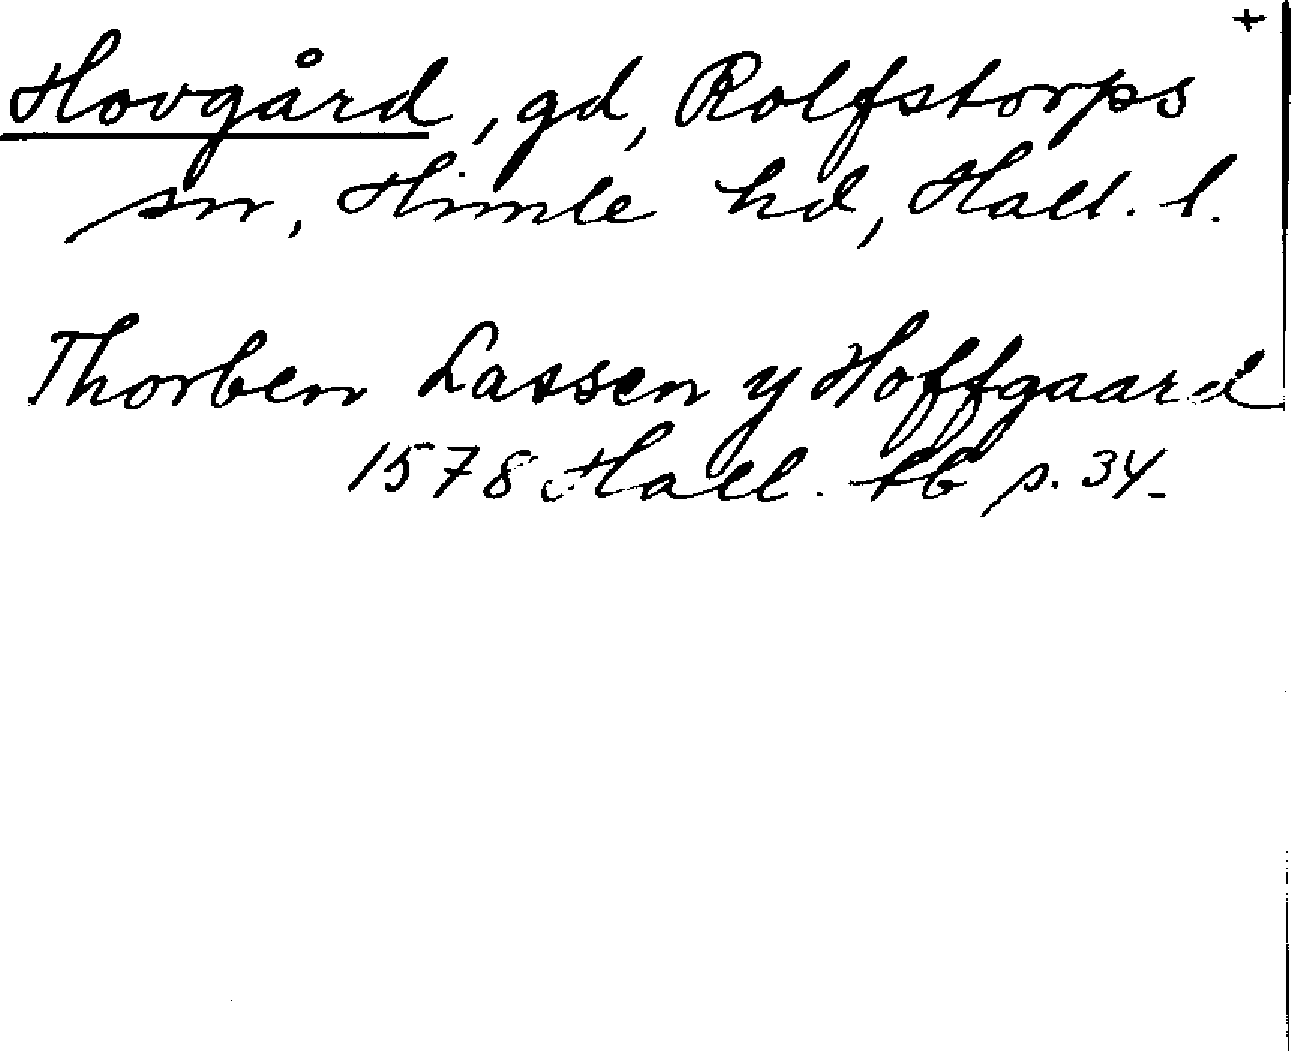 +
Hovgård, gd, Rolfstorps
sn, Himle hd, Hall. l.
Thorben Lassen y Hoffgaard
1578 Hall. tb p. 34.